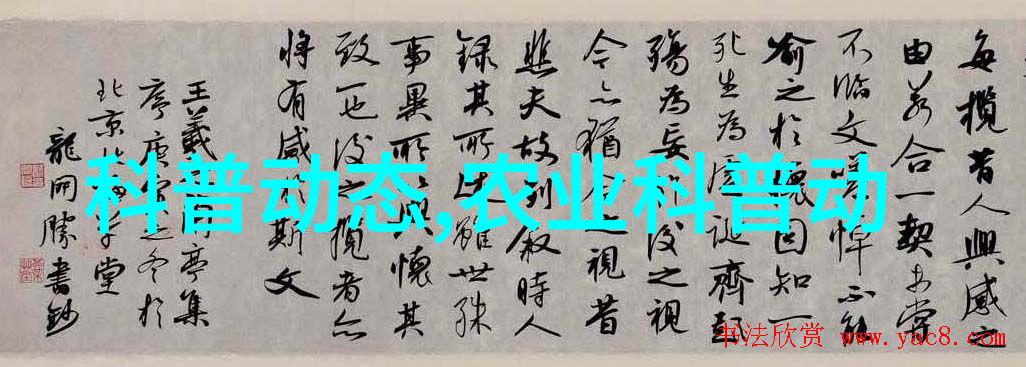 每攬昔人興感之
由若合一契未嘗
不臨文嗟悼不能
喻之於懷固知一
死生為虛誕齊彭
殤為妄作後之視
今亦猶今之視昔
悲夫故列敘時人
錄其所述雖世殊
事異所以興懷其
致一也後之攬者亦
將有感於斯文
王羲之蘭亭集
序庚寅之冬於
北京堂
龍開勝書鈔
科普动态,农业科普动
书法欣赏 www.yac8.com